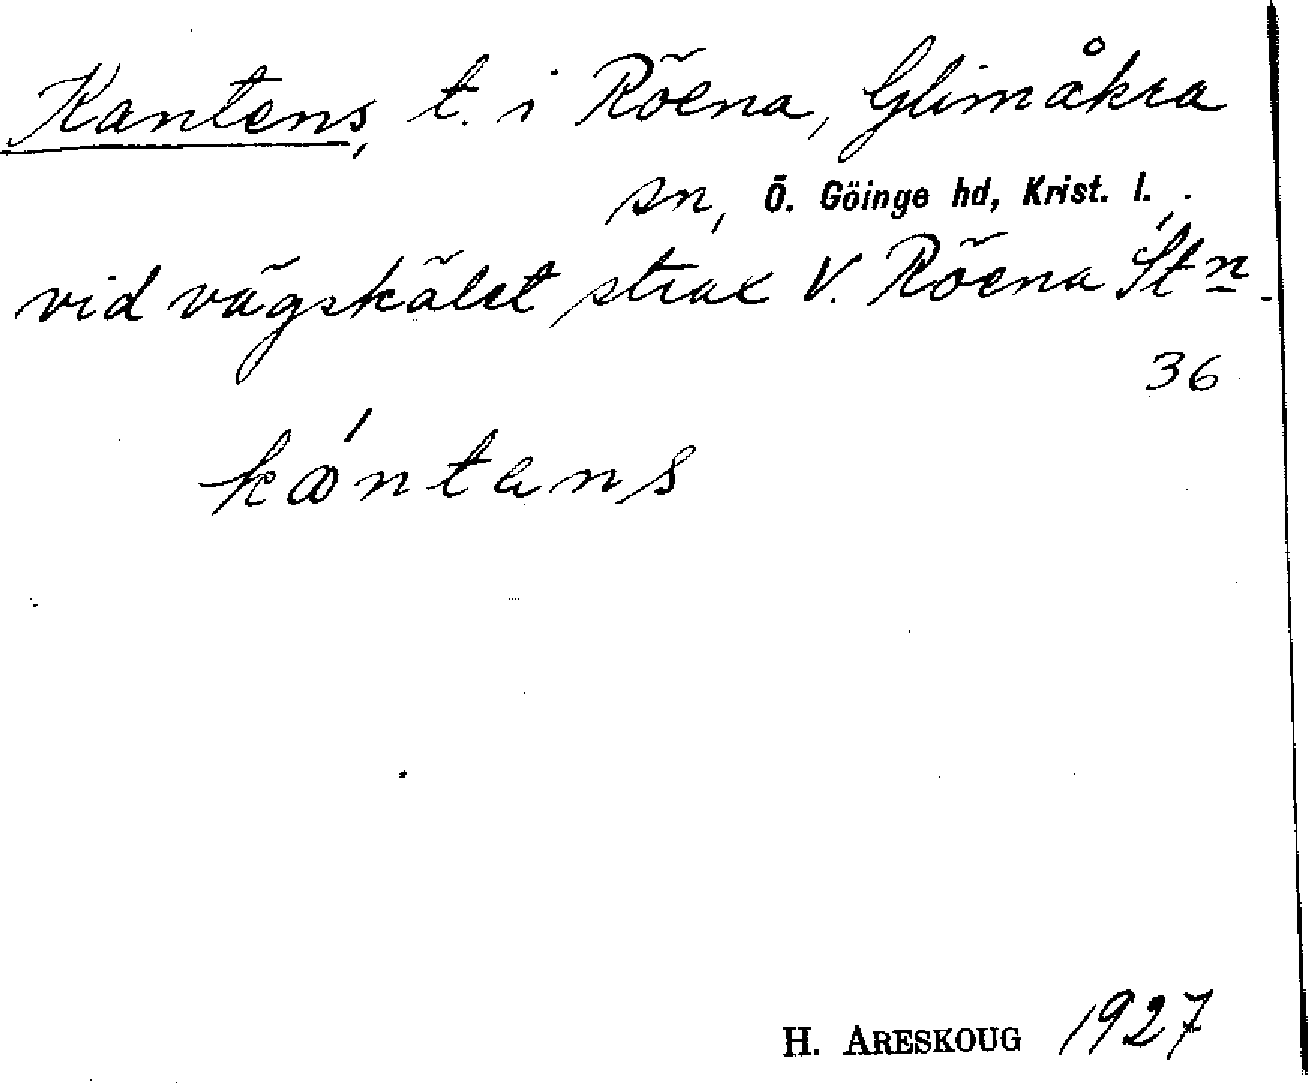 Kantens, t. i Röena, Glimåkra
sn, Ö. Göinge hd, Krist. l.
vid vägskälet strax V. Röena Stn.
36
kántans
H. ARESKOUG 1927